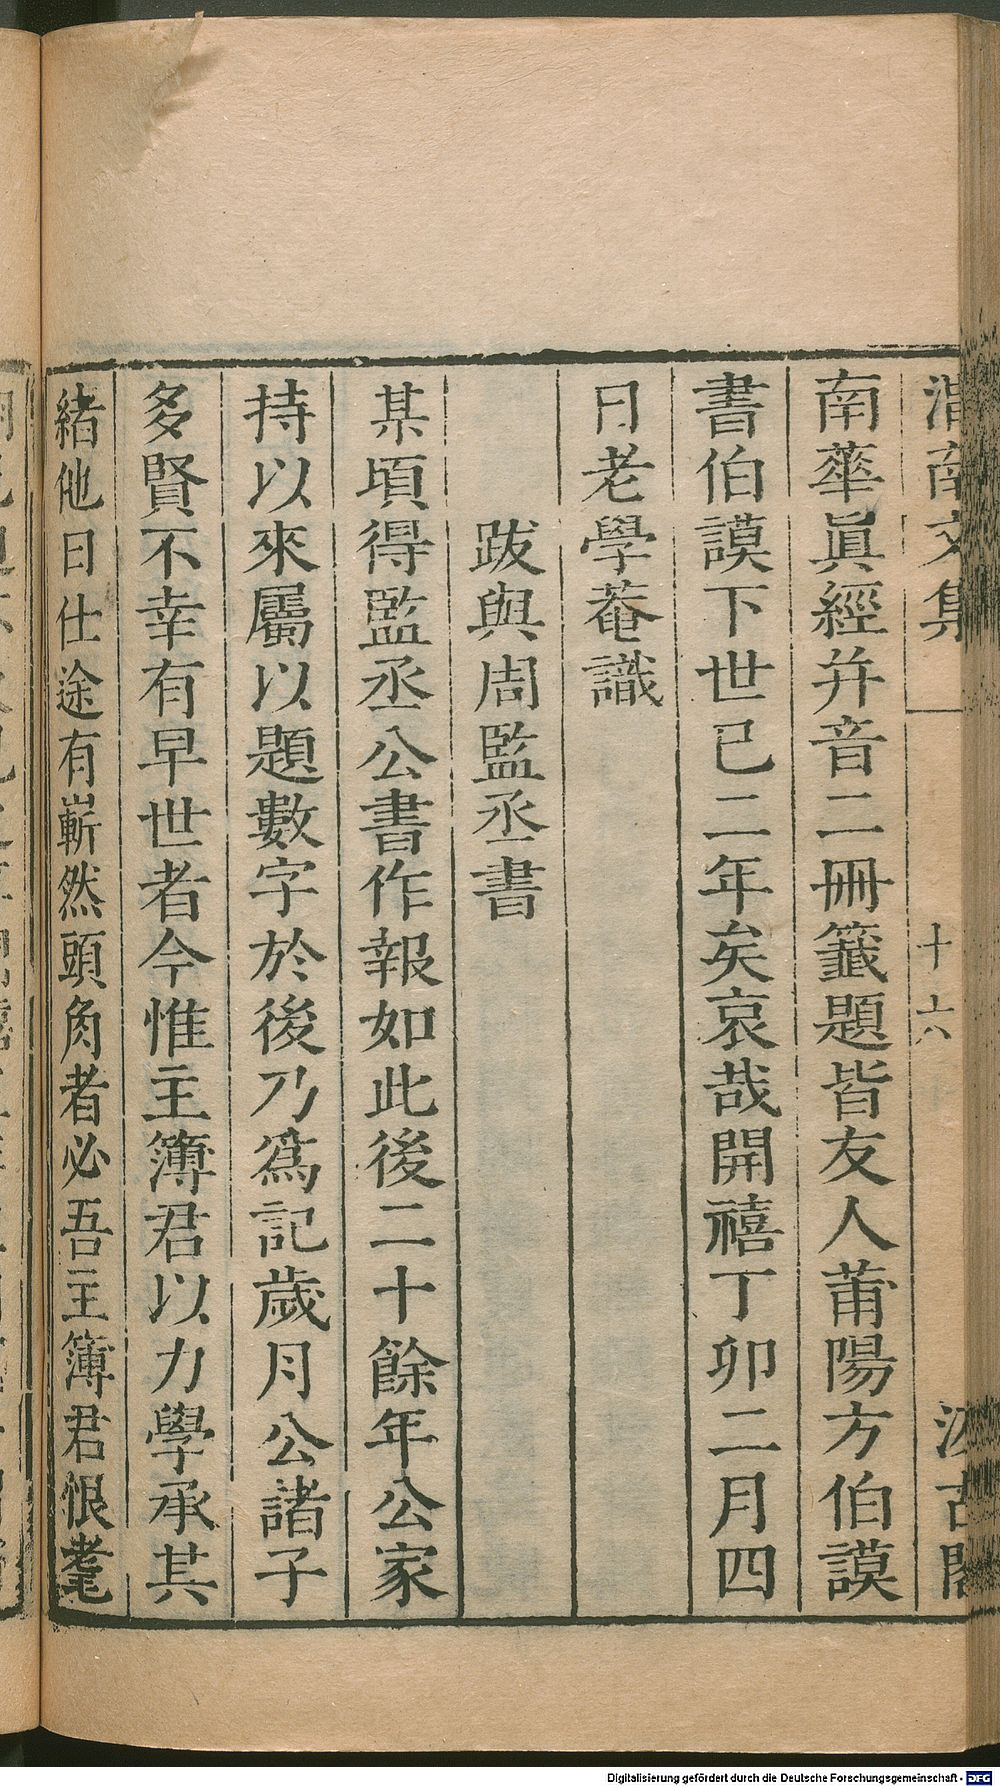 渭南文集 十六 汲古閣
南華眞經并音二冊籤題皆友人莆陽方伯謨
書伯謨下世已二年矣哀哉開禧丁卯二月四
日老學菴識
跋與周監丞書
某頃得監丞公書作報如此後二十餘年公家
持以來屬以題數字於後乃爲記歲月公諸子
多賢不幸有早世者今惟主簿君以力學承其
緒他日仕途有嶄然頭角者必吾主簿君恨耄
Digitalisierung gefördert durch die Deutsche Forschungsgemeinschaft - DFG